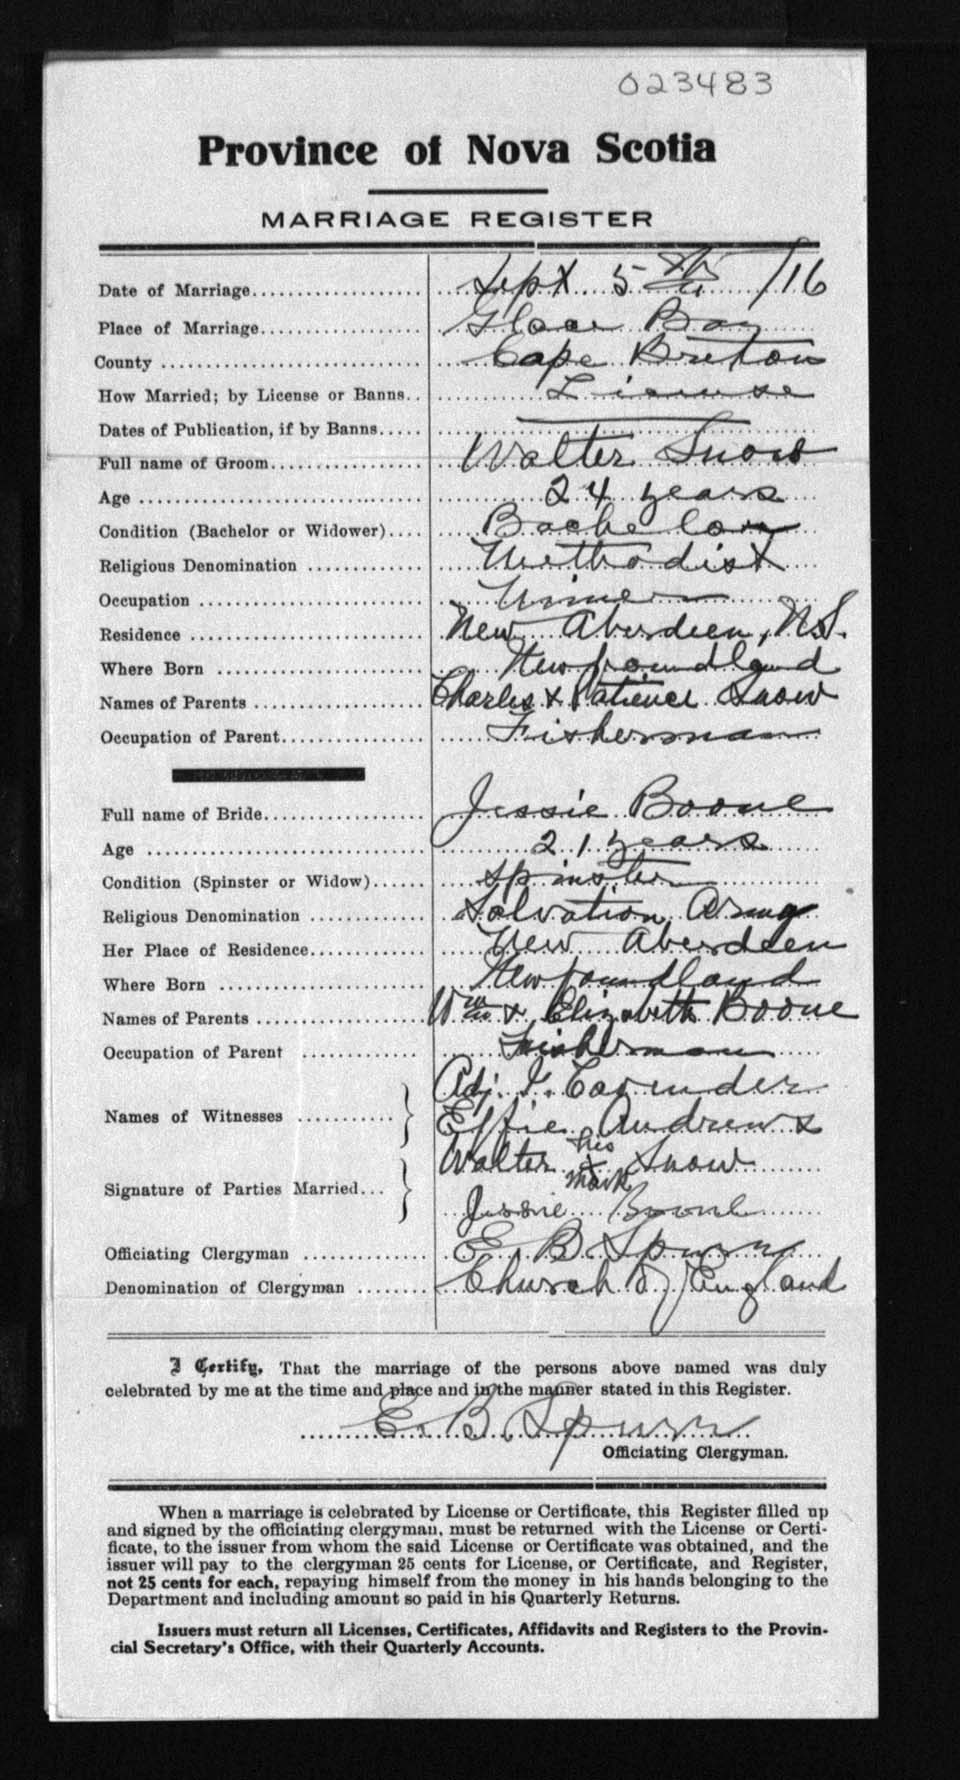 023483
Province of Nova Scotia
MARRIAGE REGISTER
Date of Marriage Sept 5th /16
Place of Marriage Glace Bay
County Cape Breton
How Married; by License or Banns License
Dates of Publication, if by Banns —
Full name of Groom Walter Snow
Age 24 years
Condition (Bachelor or Widower) Bachelor
Religious Denomination Methodist
Occupation Miner
Residence New Aberdeen, N.S.
Where Born Newfoundland
Names of Parents Charles & Patience Snow
Occupation of Parent Fisherman
Full name of Bride Jessie Boone
Age 21 years
Condition (Spinster or Widow) Spinster
Religious Denomination Salvation Army
Her Place of Residence New Aberdeen
Where Born Newfoundland
Names of Parents Wm & Elizabeth Boone
Occupation of Parent Fisherman
Names of Witnesses Adj.
Effie Andrews
Signature of Parties Married Walter his x mark Snow
Jessie Boone
Officiating Clergyman E. B. Spurr
Denomination of Clergyman Church of England
I Certify, That the marriage of the persons above named was duly
celebrated by me at the time and place and in the manner stated in this Register.
E. B. Spurr
Officiating Clergyman.
When a marriage is celebrated by License or Certificate, this Register filled up
and signed by the officiating clergyman, must be returned with the License or Certi-
ficate, to the issuer from whom the said License or Certificate was obtained, and the
issuer will pay to the clergyman 25 cents for License, or Certificate, and Register,
not 25 cents for each, repaying himself from the money in his hands belonging to the
Department and including amount so paid in his Quarterly Returns.
Issuers must return all Licenses, Certificates, Affidavits and Registers to the Provin-
cial Secretary's Office, with their Quarterly Accounts.